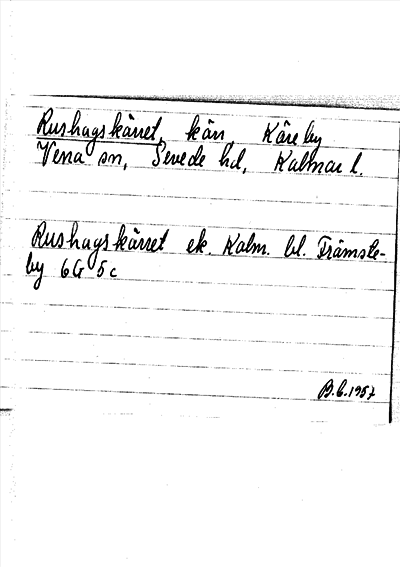 Rushagskärret, kärr, Kåreby
Vena sn, Sevede hd, Kalmar l.
Rushagskärret ek. Kalm. bl. Främste-
by 6G 5c
B.C. 1957